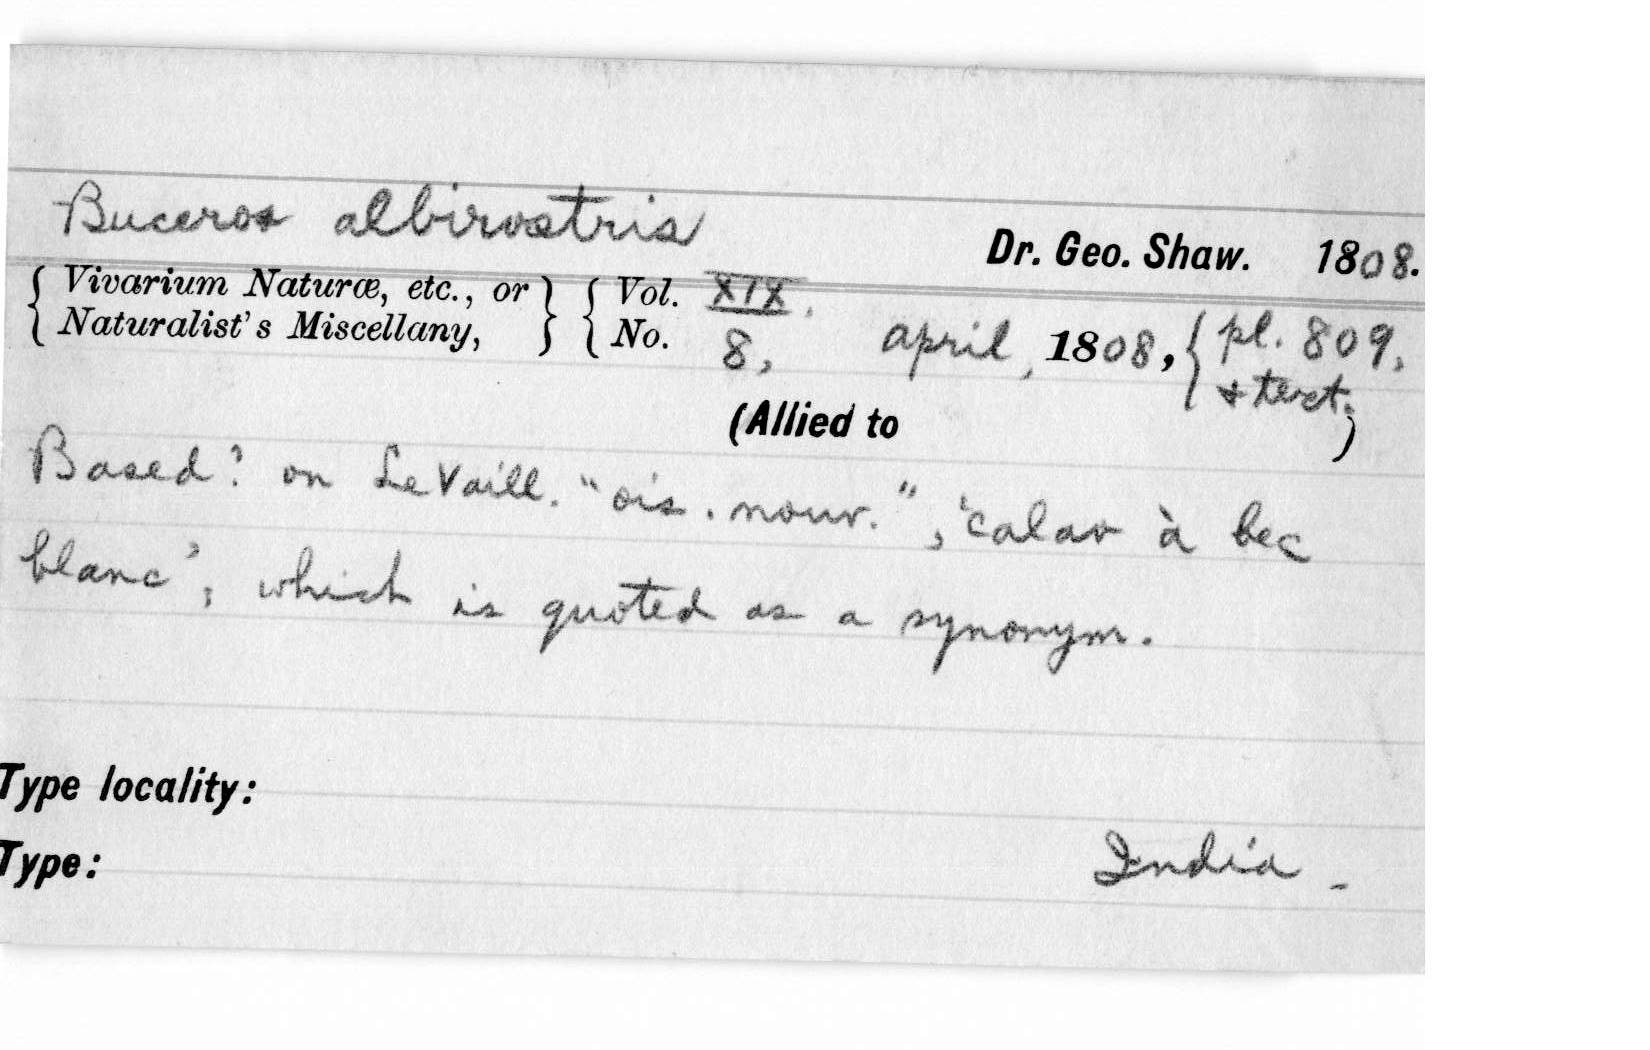 Buceros albirostris
Dr. Geo. Shaw. 1808.
{ Vivarium Naturæ, etc., or } { Vol. XIX.
{ Naturalist's Miscellany, } { No. 8, april, 1808, { pl. 809,
& text.
(Allied to )
Based? on LeVaill. "ois. nouv.", 'calao à bec
blanc', which is quoted as a synonym.
Type locality:
Type: India -